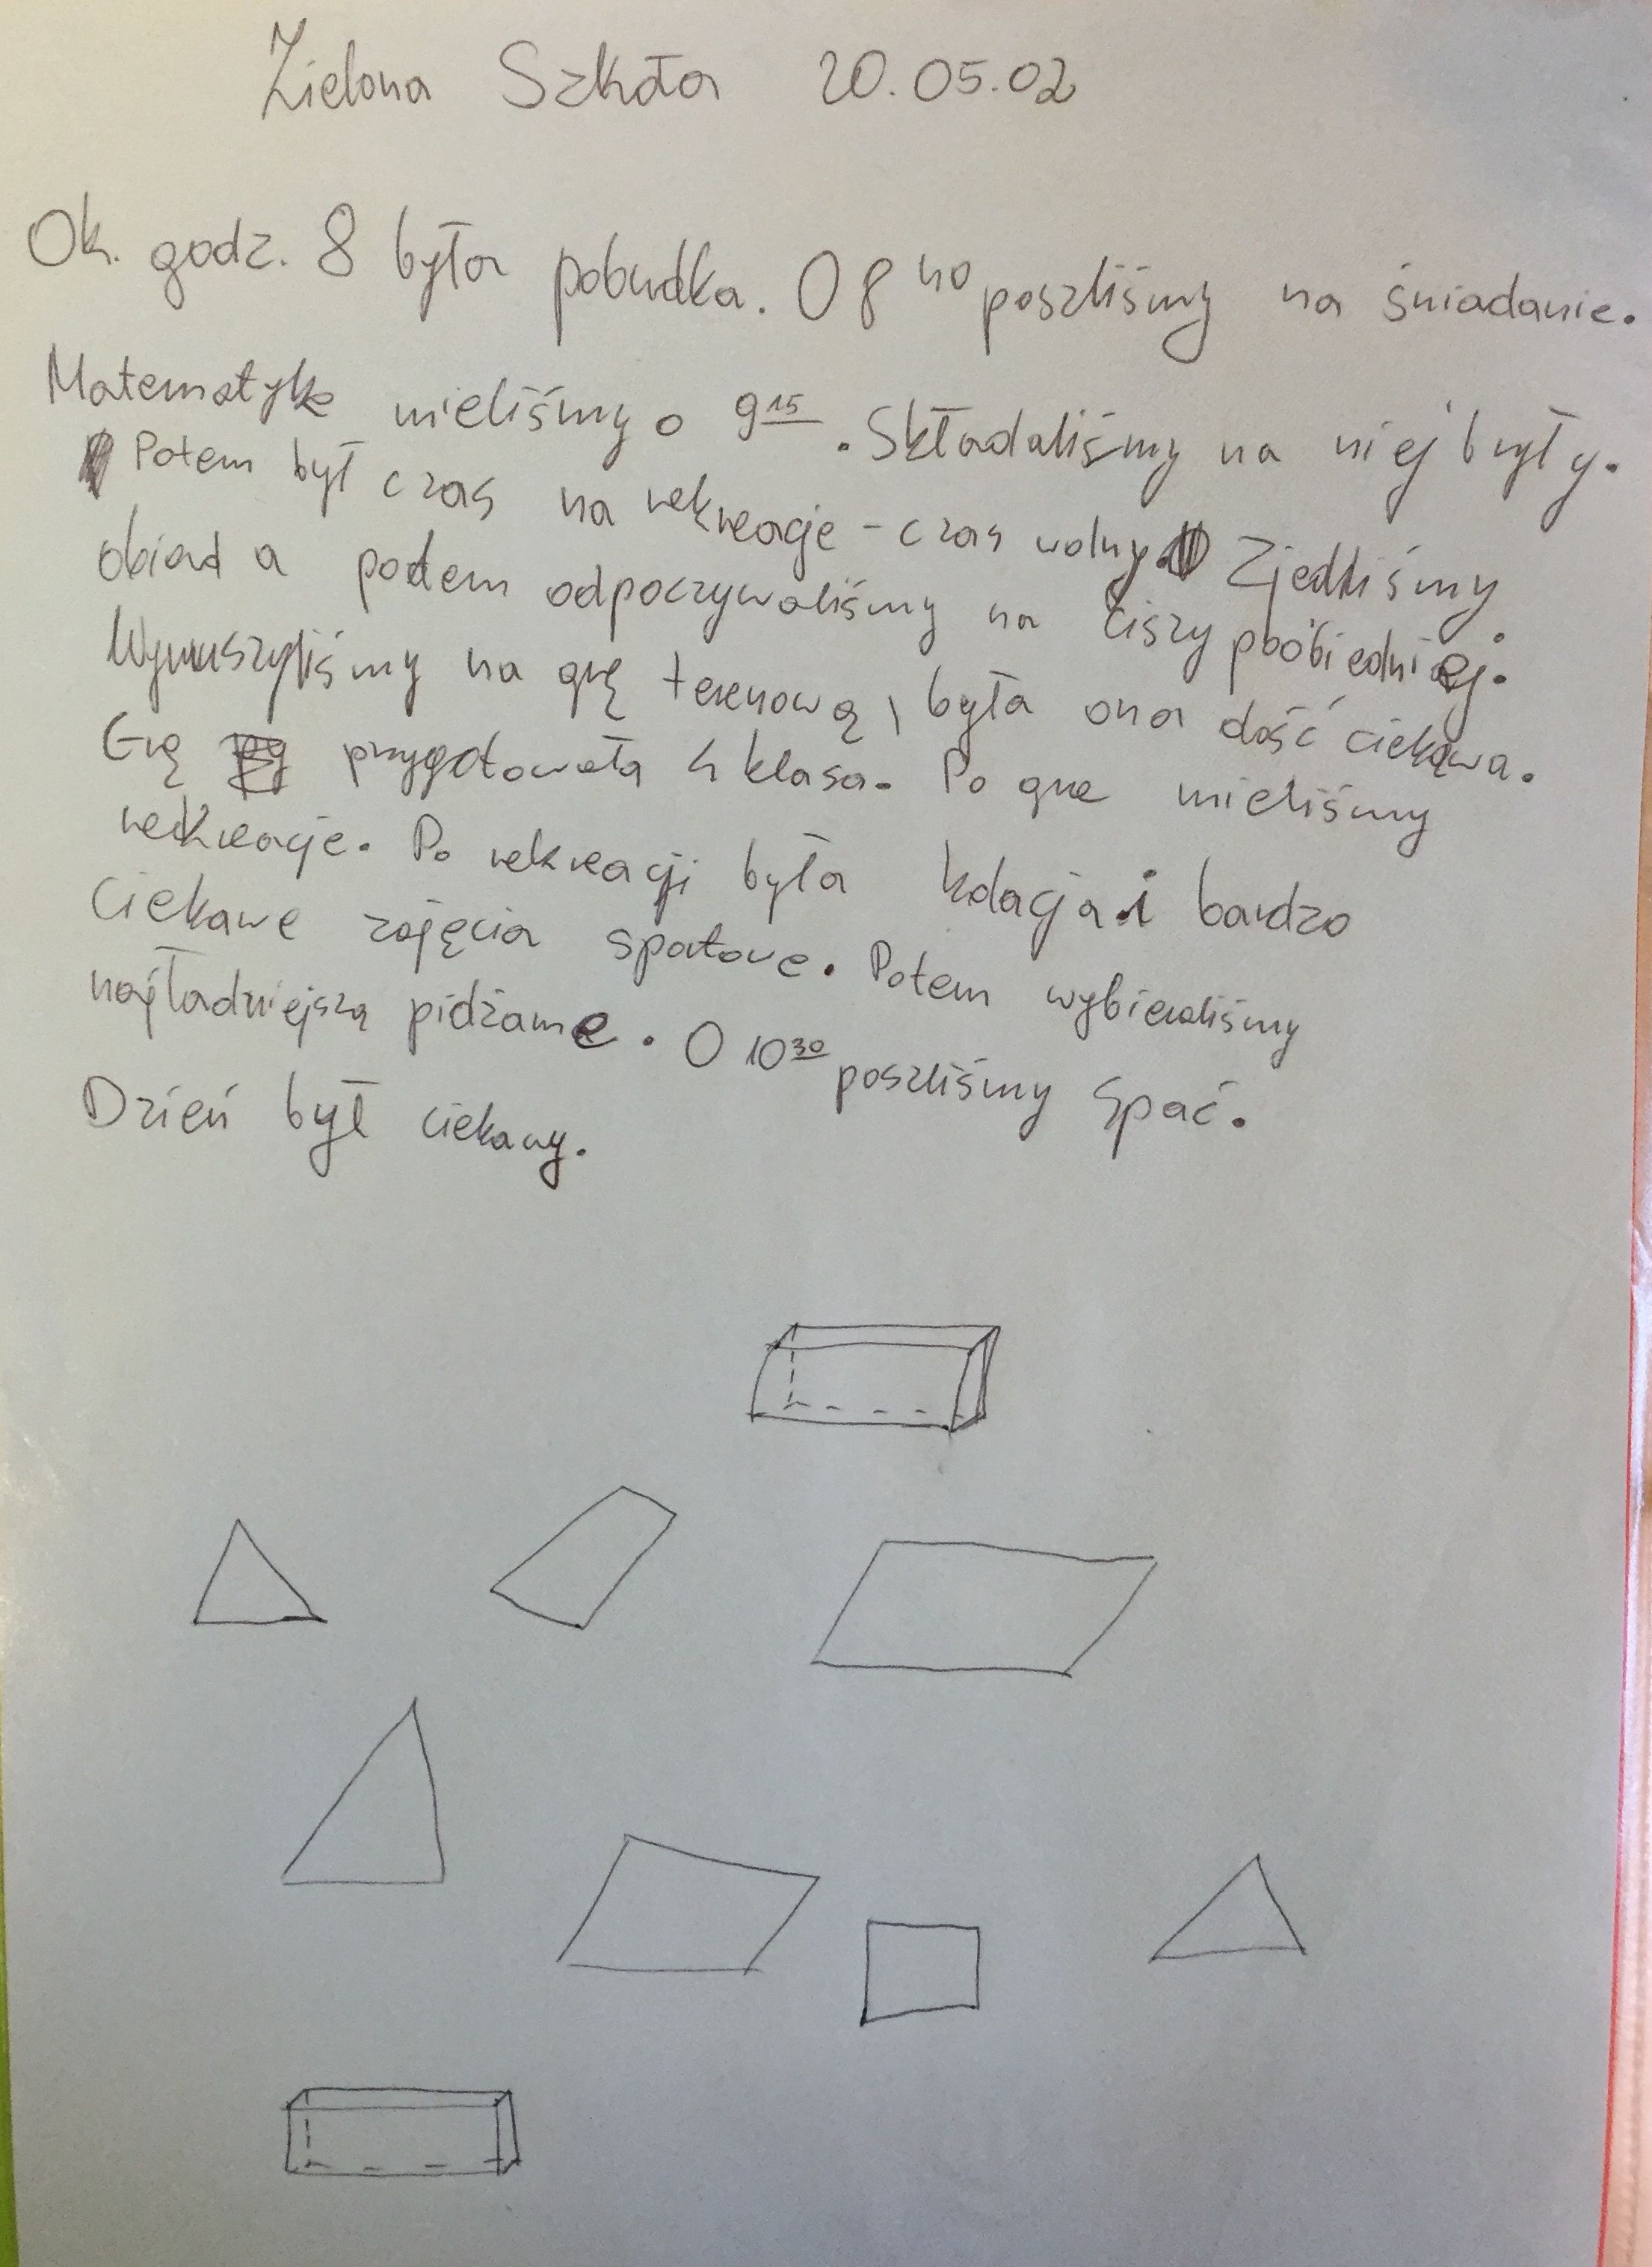 Zielona Szkoła 20.05.02
Ok. godz. 8 była pobudka. O 8 40 poszliśmy na śniadanie.
Matematyke mieliśmy o 9 15. Składaliśmy na niej bryły.
Potem był czas na rekreacje - czas wolny. Zjedliśmy
obiad a potem odpoczywaliśmy na ciszy poobiedniej.
Wyruszyliśmy na grę terenową, była ona dość ciekawa.
Grę przygotowała 4 klasa. Po grze mieliśmy
rekreacje. Po rekreacji była kolacja i bardzo
ciekawe zajęcia sportowe. Potem wybieraliśmy
najładniejszą pidżame. O 10 30 poszliśmy spać.
Dzień był ciekawy.